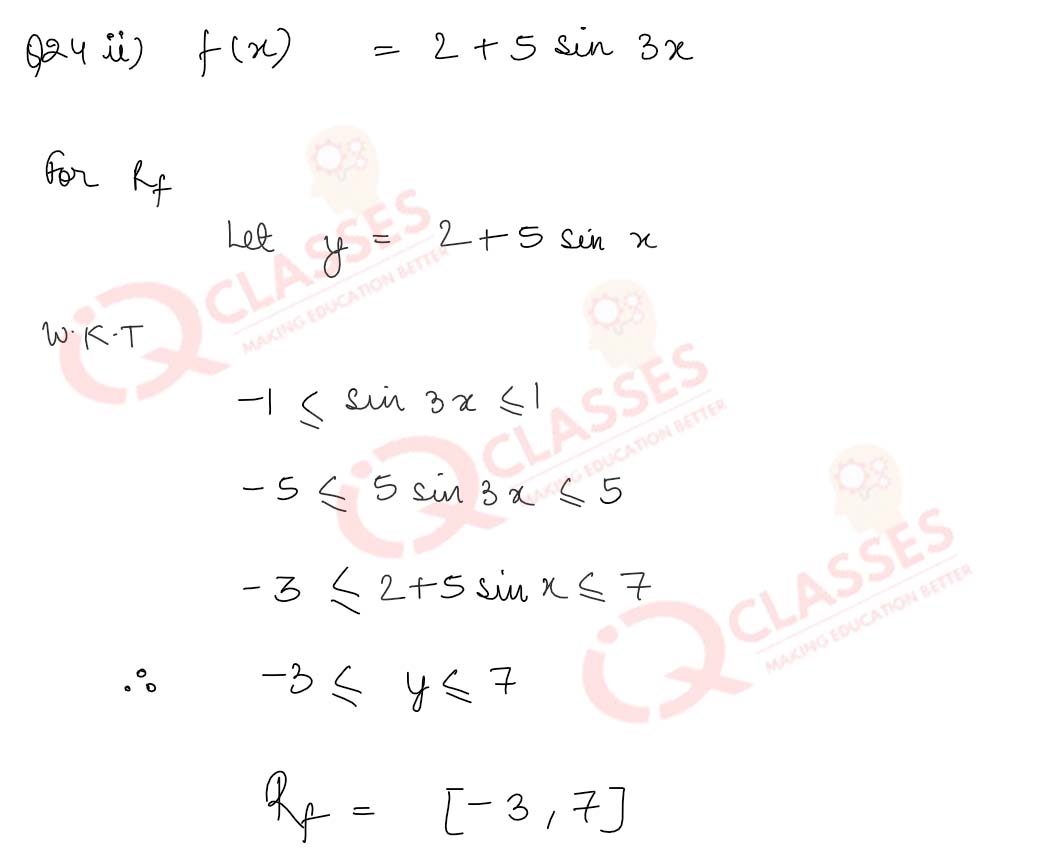 Q24 ii) f(x) = 2 + 5 sin 3x
For Rf
Let y = 2 + 5 sin x
W.K.T
-1 ≤ sin 3x ≤ 1
-5 ≤ 5 sin 3x ≤ 5
-3 ≤ 2+5 sin x ≤ 7
∴ -3 ≤ y ≤ 7
Rf = [-3, 7]
iQ CLASSES
MAKING EDUCATION BETTER
iQ CLASSES
MAKING EDUCATION BETTER
iQ CLASSES
MAKING EDUCATION BETTER